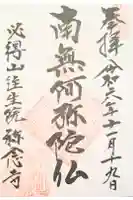 奉拝 令和六年十一月十九日
南無阿弥陀仏
必得山往生院 弥念寺